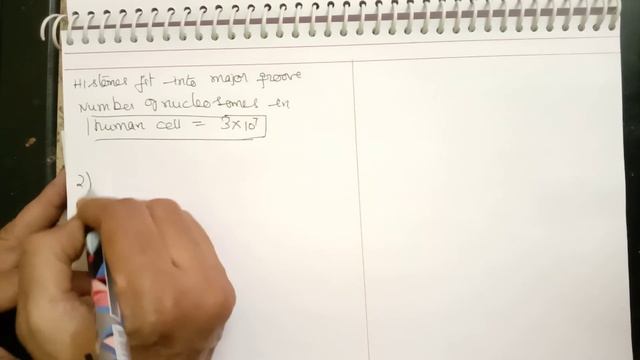 Histones fit into major groove
Number of nucleosomes in
1 human cell = 3×10⁷
2)